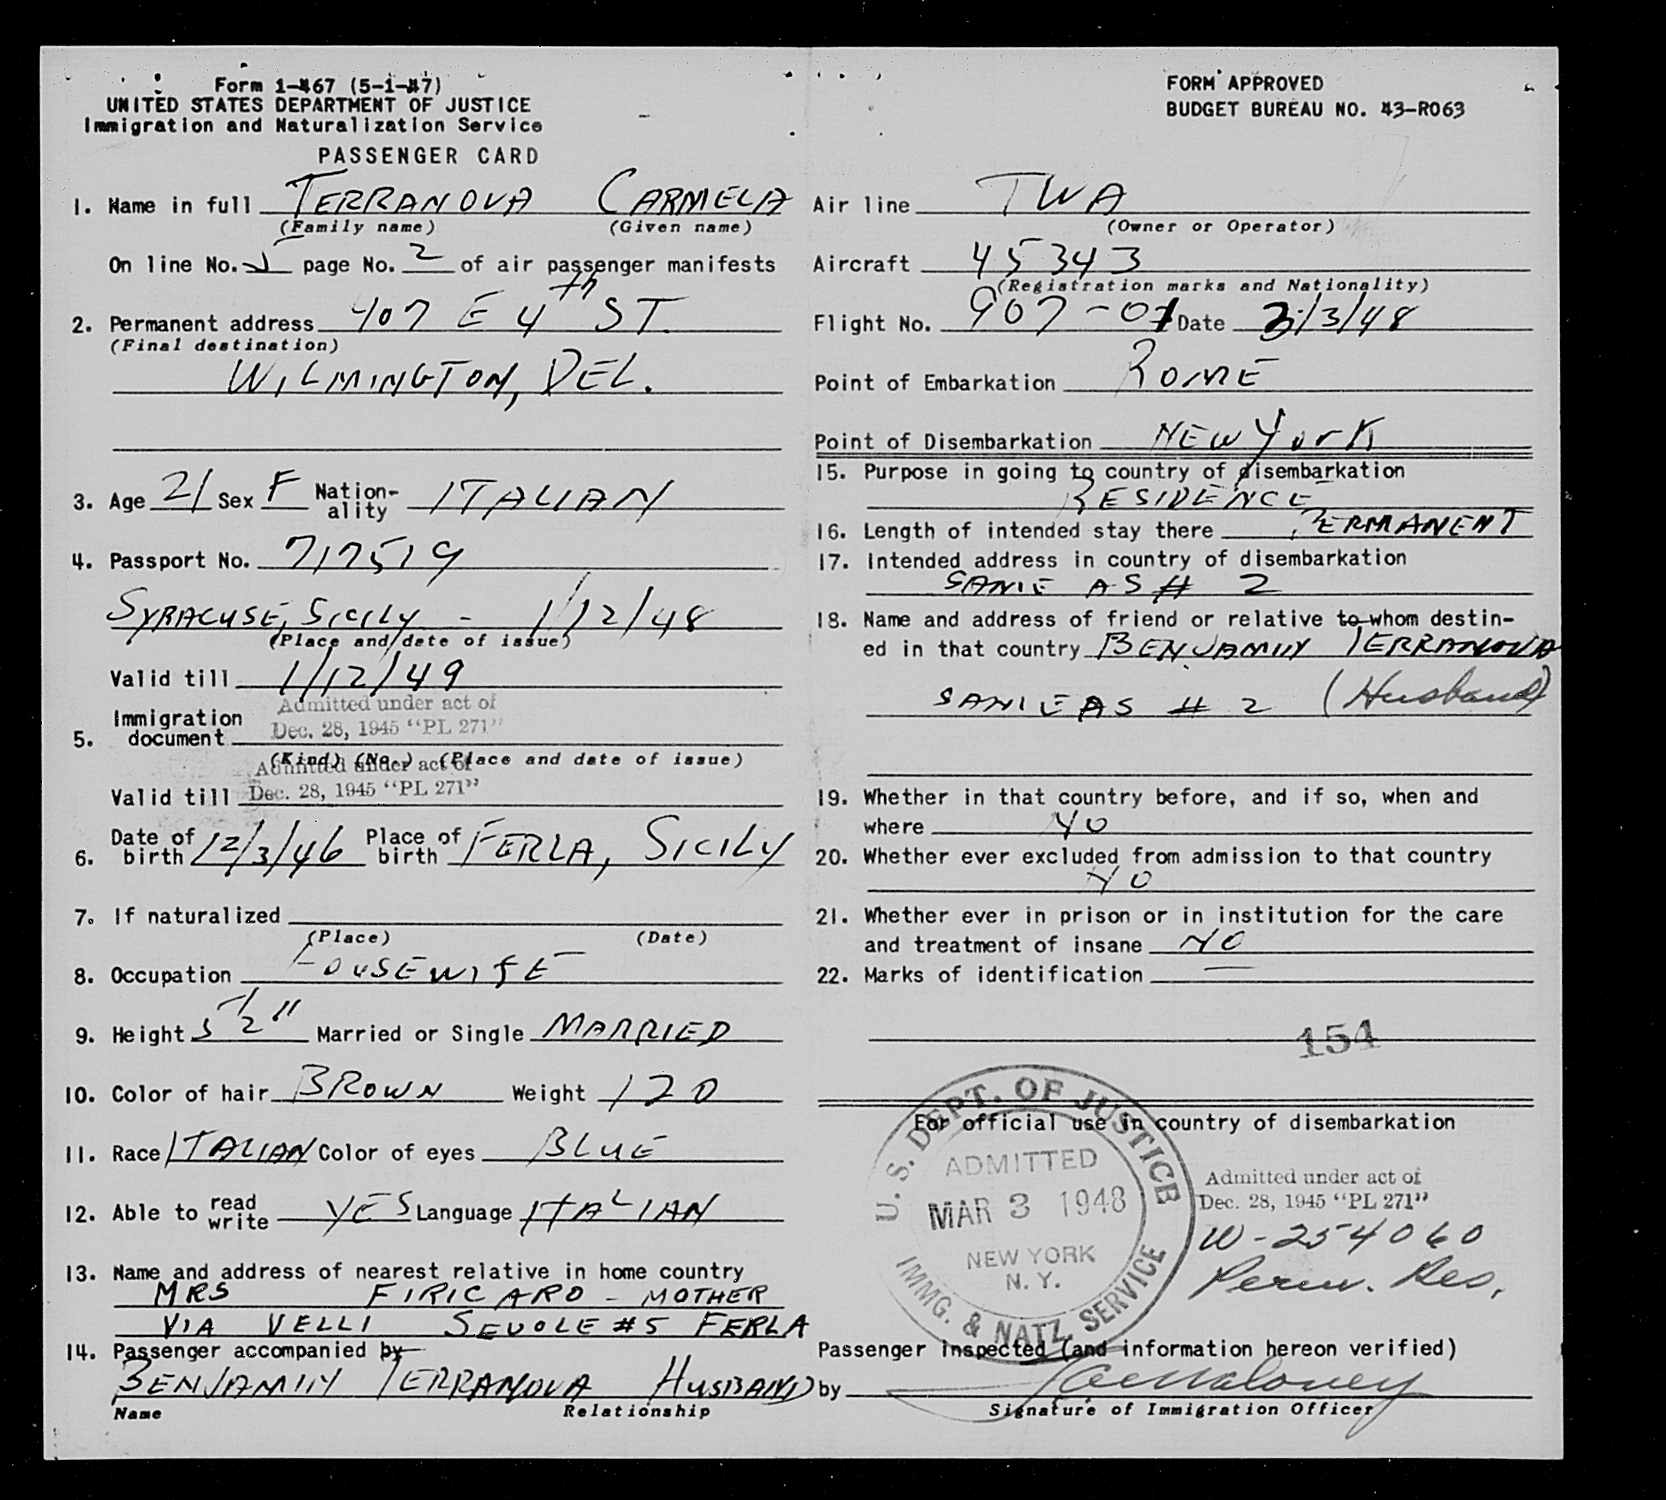 Form 1-467 (5-1-47)
UNITED STATES DEPARTMENT OF JUSTICE
Immigration and Naturalization Service
PASSENGER CARD
FORM APPROVED
BUDGET BUREAU NO. 43-R063
1. Name in full TERRANOVA CARMELA
(Family name) (Given name)
On line No. 5 page No. 2 of air passenger manifests
2. Permanent address 407 E 4th ST.
(Final destination)
WILMINGTON, DEL.
3. Age 21 Sex F Nation-ality ITALIAN
4. Passport No. 717519
SYRACUSE, SICILY - 1/12/48
(Place and date of issue)
Valid till 1/12/49
Admitted under act of
5. Immigration document Dec. 28, 1945 "PL 271"
(Kind) (No.) (Place and date of issue)
Admitted under act of
Valid till Dec. 28, 1945 "PL 271"
6. Date of birth 12/3/46 Place of birth FERLA, SICILY
7. If naturalized
(Place) (Date)
8. Occupation HOUSEWIFE
9. Height 5 2" Married or Single MARRIED
10. Color of hair BROWN Weight 120
11. Race ITALIAN Color of eyes BLUE
12. Able to read write YES Language ITALIAN
13. Name and address of nearest relative in home country
MRS FIRICARO - MOTHER
VIA VELLI SEUOLE #5 FERLA
14. Passenger accompanied by
BENJAMIN TERRANOVA HUSBAND
Name Relationship
Air line TWA
(Owner or Operator)
Aircraft 45343
(Registration marks and Nationality)
Flight No. 907-01 Date 3/3/48
Point of Embarkation ROME
Point of Disembarkation NEW YORK
15. Purpose in going to country of disembarkation
RESIDENCE
16. Length of intended stay there PERMANENT
17. Intended address in country of disembarkation
SAME AS # 2
18. Name and address of friend or relative to whom destin-
ed in that country BENJAMIN TERRANOVA
SAME AS # 2 (Husband)
19. Whether in that country before, and if so, when and
where NO
20. Whether ever excluded from admission to that country
NO
21. Whether ever in prison or in institution for the care
and treatment of insane NO
22. Marks of identification —
154
For official use in country of disembarkation
U. S. DEPT. OF JUSTICE
ADMITTED
MAR 3 1948
NEW YORK
N. Y.
IMMG. & NATZ. SERVICE
Admitted under act of
Dec. 28, 1945 "PL 271"
W-254060
Perm. Res.
Passenger inspected (and information hereon verified)
by
Signature of Immigration Officer